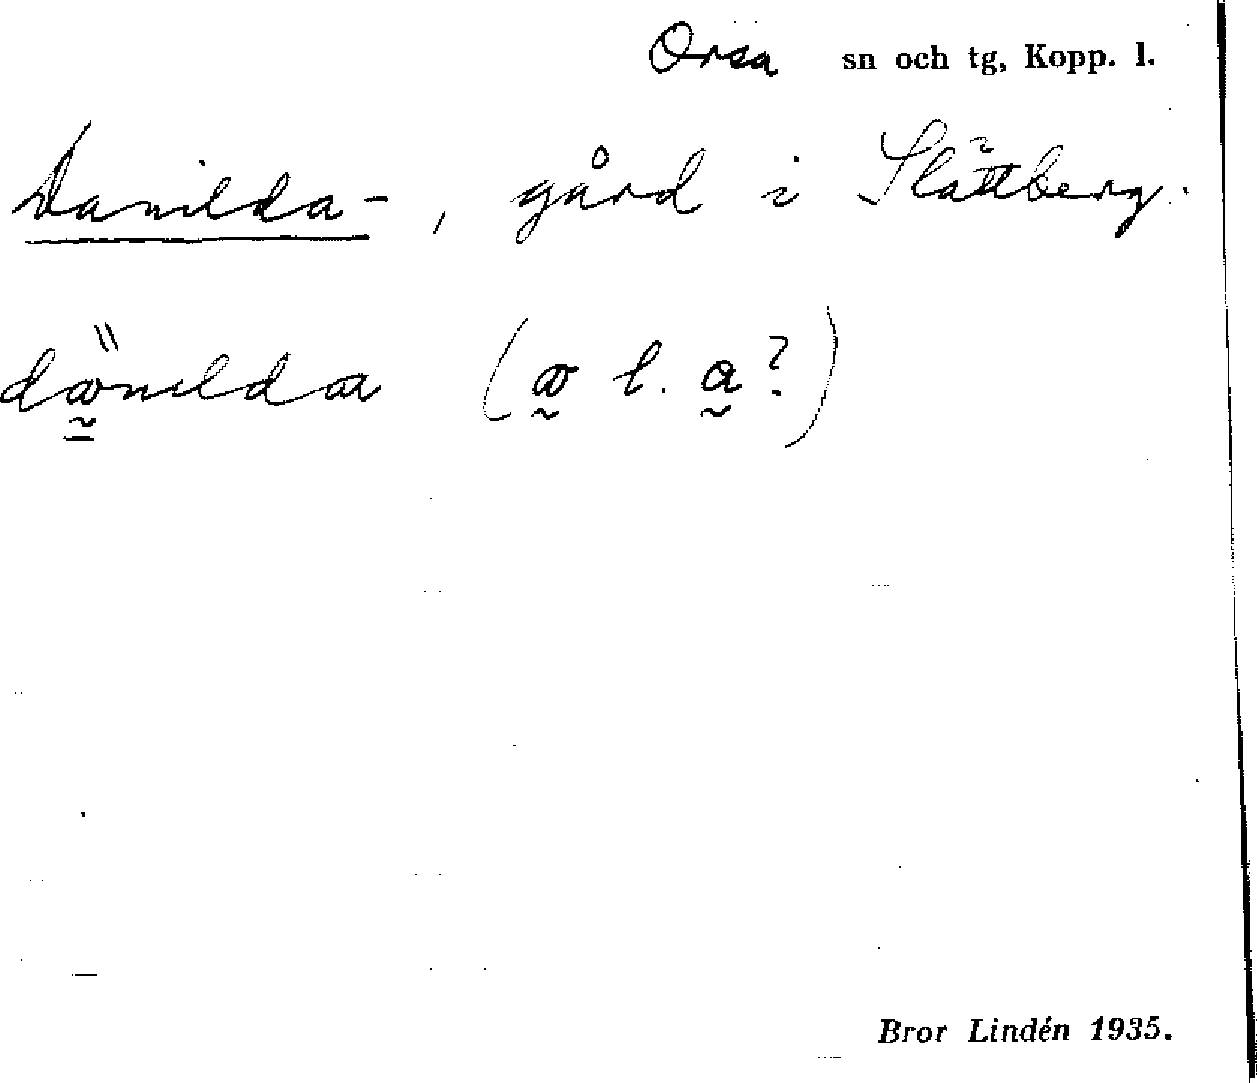 Orsa sn och tg, Kopp. l.
Danilda-, gård i Slättberg.
danilda (a l. a?)
Bror Lindén 1935.